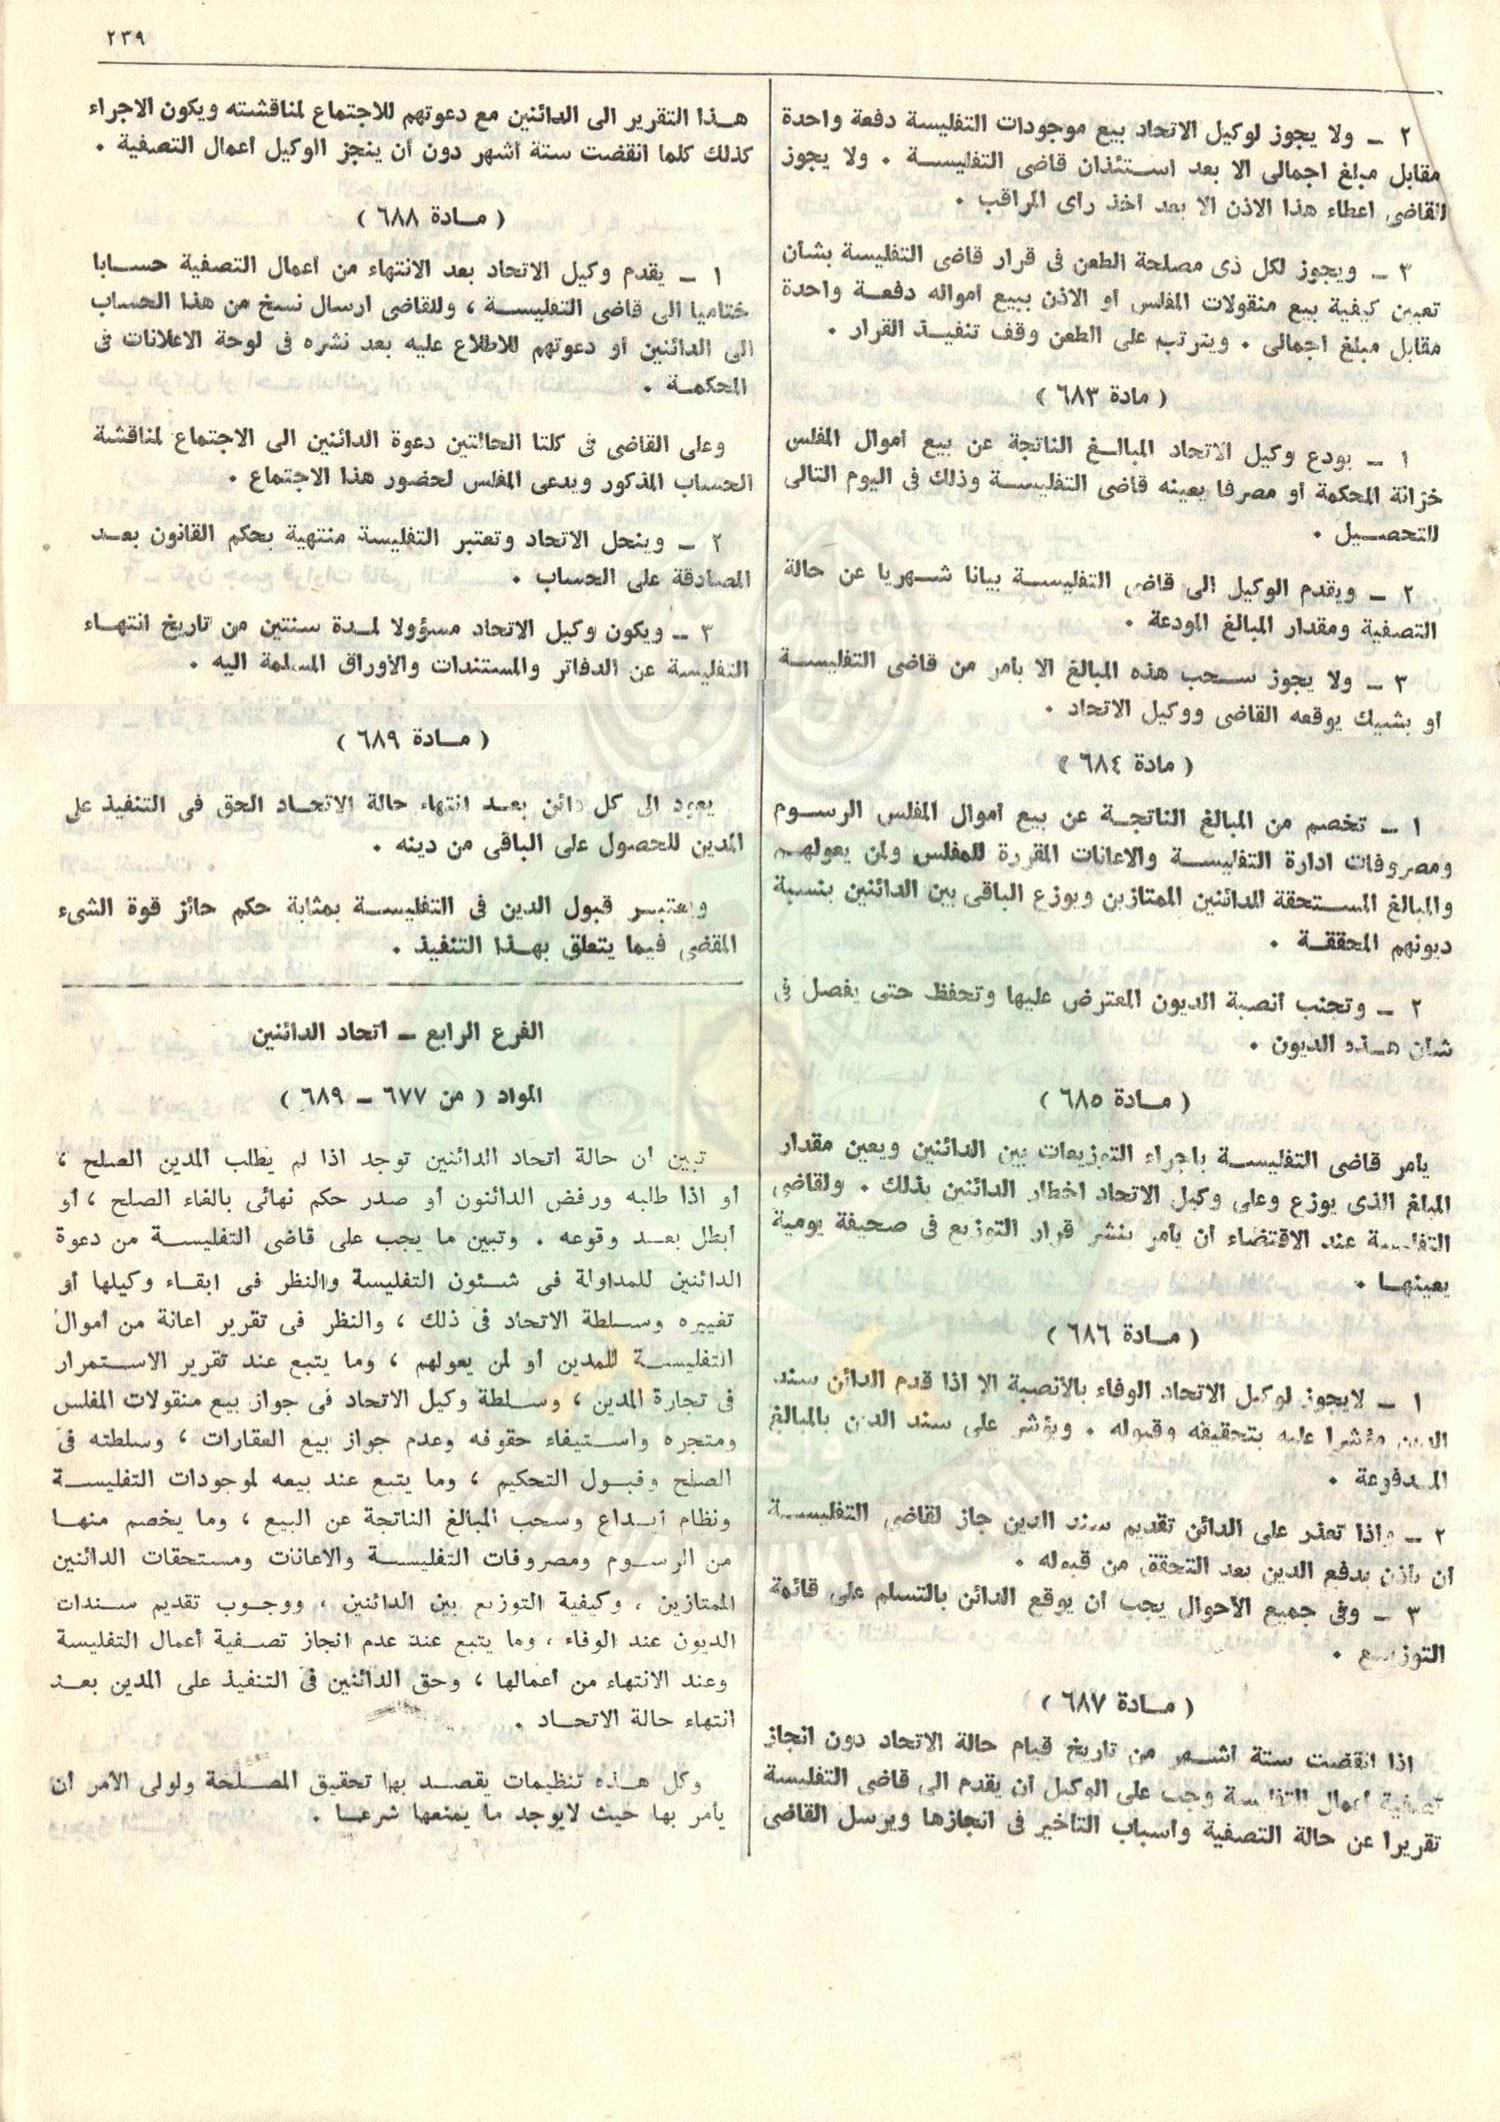 ٢٣٩
٢ ـ ولا يجوز لوكيل الاتحاد بيع موجودات التفليسة دفعة واحدة
مقابل مبلغ اجمالى الا بعد استئذان قاضى التفليسة . ولا يجوز
للقاضى اعطاء هذا الاذن الا بعد اخذ راى المراقب .
٣ ـ ويجوز لكل ذى مصلحة الطعن فى قرار قاضى التفليسة بشأن
تعيين كيفية بيع منقولات المفلس أو الاذن ببيع أمواله دفعة واحدة
مقابل مبلغ اجمالى . ويترتب على الطعن وقف تنفيذ القرار .
( مادة ٦٨٣ )
١ ـ يودع وكيل الاتحاد المبالغ الناتجة عن بيع أموال المفلس
خزانة المحكمة أو مصرفا يعينه قاضى التفليسة وذلك فى اليوم التالى
للتحصيل .
٢ ـ ويقدم الوكيل الى قاضى التفليسة بيانا شهريا عن حالة
التصفية ومقدار المبالغ المودعة .
٣ ـ ولا يجوز سحب هذه المبالغ الا بأمر من قاضى التفليسة
أو بشيك يوقعه القاضى ووكيل الاتحاد .
( مادة ٦٨٤ )
١ ـ تخصم من المبالغ الناتجة عن بيع أموال المفلس الرسوم
ومصروفات ادارة التفليسة والاعانات المقررة للمفلس ولمن يعولهم
والمبالغ المستحقة للدائنين الممتازين ويوزع الباقى بين الدائنين بنسبة
ديونهم المحققة .
٢ ـ وتجنب أنصبة الديون المعترض عليها وتحفظ حتى يفصل فى
شأن هذه الديون .
( مادة ٦٨٥ )
يأمر قاضى التفليسة باجراء التوزيعات بين الدائنين ويعين مقدار
المبلغ الذى يوزع وعلى وكيل الاتحاد اخطار الدائنين بذلك . ولقاضى
التفليسة عند الاقتضاء أن يأمر بنشر قرار التوزيع فى صحيفة يومية
يعينها .
( مادة ٦٨٦ )
١ ـ لايجوز لوكيل الاتحاد الوفاء بالأنصبة الا اذا قدم الدائن سند
الدين مؤشرا عليه بتحقيقه وقبوله . ويؤشر على سند الدين بالمبالغ
المدفوعة .
٢ ـ واذا تعذر على الدائن تقديم سند الدين جاز لقاضى التفليسة
أن يأذن بدفع الدين بعد التحقق من قبوله .
٣ ـ وفى جميع الأحوال يجب أن يوقع الدائن بالتسلم على قائمة
التوزيع .
( مادة ٦٨٧ )
اذا انقضت ستة اشهر من تاريخ قيام حالة الاتحاد دون انجاز
تصفية أعمال التفليسة وجب على الوكيل أن يقدم الى قاضى التفليسة
تقريرا عن حالة التصفية وأسباب التأخير فى انجازها ويرسل القاضى
هذا التقرير الى الدائنين مع دعوتهم للاجتماع لمناقشته ويكون الاجراء
كذلك كلما انقضت ستة أشهر دون أن ينجز الوكيل أعمال التصفية .
( مادة ٦٨٨ )
١ ـ يقدم وكيل الاتحاد بعد الانتهاء من أعمال التصفية حسابا
ختاميا الى قاضى التفليسة ، وللقاضى ارسال نسخ من هذا الحساب
الى الدائنين أو دعوتهم للاطلاع عليه بعد نشره فى لوحة الاعلانات فى
المحكمة .
وعلى القاضى فى كلتا الحالتين دعوة الدائنين الى الاجتماع لمناقشة
الحساب المذكور ويدعى المفلس لحضور هذا الاجتماع .
٢ ـ وينحل الاتحاد وتعتبر التفليسة منتهية بحكم القانون بعد
المصادقة على الحساب .
٣ ـ ويكون وكيل الاتحاد مسؤولا لمدة سنتين من تاريخ انتهاء
التفليسة عن الدفاتر والمستندات والأوراق المسلمة اليه .
( مادة ٦٨٩ )
يعود الى كل دائن بعد انتهاء حالة الاتحاد الحق فى التنفيذ على
المدين للحصول على الباقى من دينه .
ويعتبر قبول الدين فى التفليسة بمثابة حكم حائز قوة الشىء
المقضى فيما يتعلق بهذا التنفيذ .
الفرع الرابع ـ اتحاد الدائنين
المواد ( من ٦٧٧ ـ ٦٨٩ )
تبين أن حالة اتحاد الدائنين توجد اذا لم يطلب المدين الصلح ،
أو اذا طلبه ورفض الدائنون أو صدر حكم نهائى بالغاء الصلح ، أو
أبطل بعد وقوعه . وتبين ما يجب على قاضى التفليسة من دعوة
الدائنين للمداولة فى شئون التفليسة والنظر فى ابقاء وكيلها أو
تغييره وسلطة الاتحاد فى ذلك ، والنظر فى تقرير اعانة من أموال
التفليسة للمدين أو لمن يعولهم ، وما يتبع عند تقرير الاستمرار
فى تجارة المدين ، وسلطة وكيل الاتحاد فى جواز بيع منقولات المفلس
ومتجره واستيفاء حقوقه وعدم جواز بيع العقارات ، وسلطته فى
الصلح وقبول التحكيم ، وما يتبع عند بيعه لموجودات التفليسة
ونظام ايداع وسحب المبالغ الناتجة عن البيع ، وما يخصم منها
من الرسوم ومصروفات التفليسة والاعانات ومستحقات الدائنين
الممتازين ، وكيفية التوزيع بين الدائنين ، ووجوب تقديم سندات
الديون عند الوفاء ، وما يتبع عند عدم انجاز تصفية أعمال التفليسة
وعند الانتهاء من أعمالها ، وحق الدائنين فى التنفيذ على المدين بعد
انتهاء حالة الاتحاد .
وكل هذه تنظيمات يقصد بها تحقيق المصلحة ولولى الأمر أن
يأمر بها حيث لايوجد ما يمنعها شرعا .